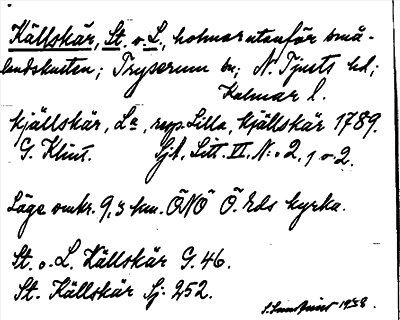 Källskär, St. o. L., holmar utanför små-
landskusten; Tryserum sn; N. Tjusts hd;
Kalmar l.
Kjällskär, La, resp. Lilla, Kjällskär 1789.
G. Klint. Sjk. Litt. VI. N:o 2, 1 o 2.
Läge omkr. 9,3 km. ÖNÖ Ö. Eds kyrka.
St. o. L. Källskär G. 46.
St. Källskär Sj. 252.
1938.